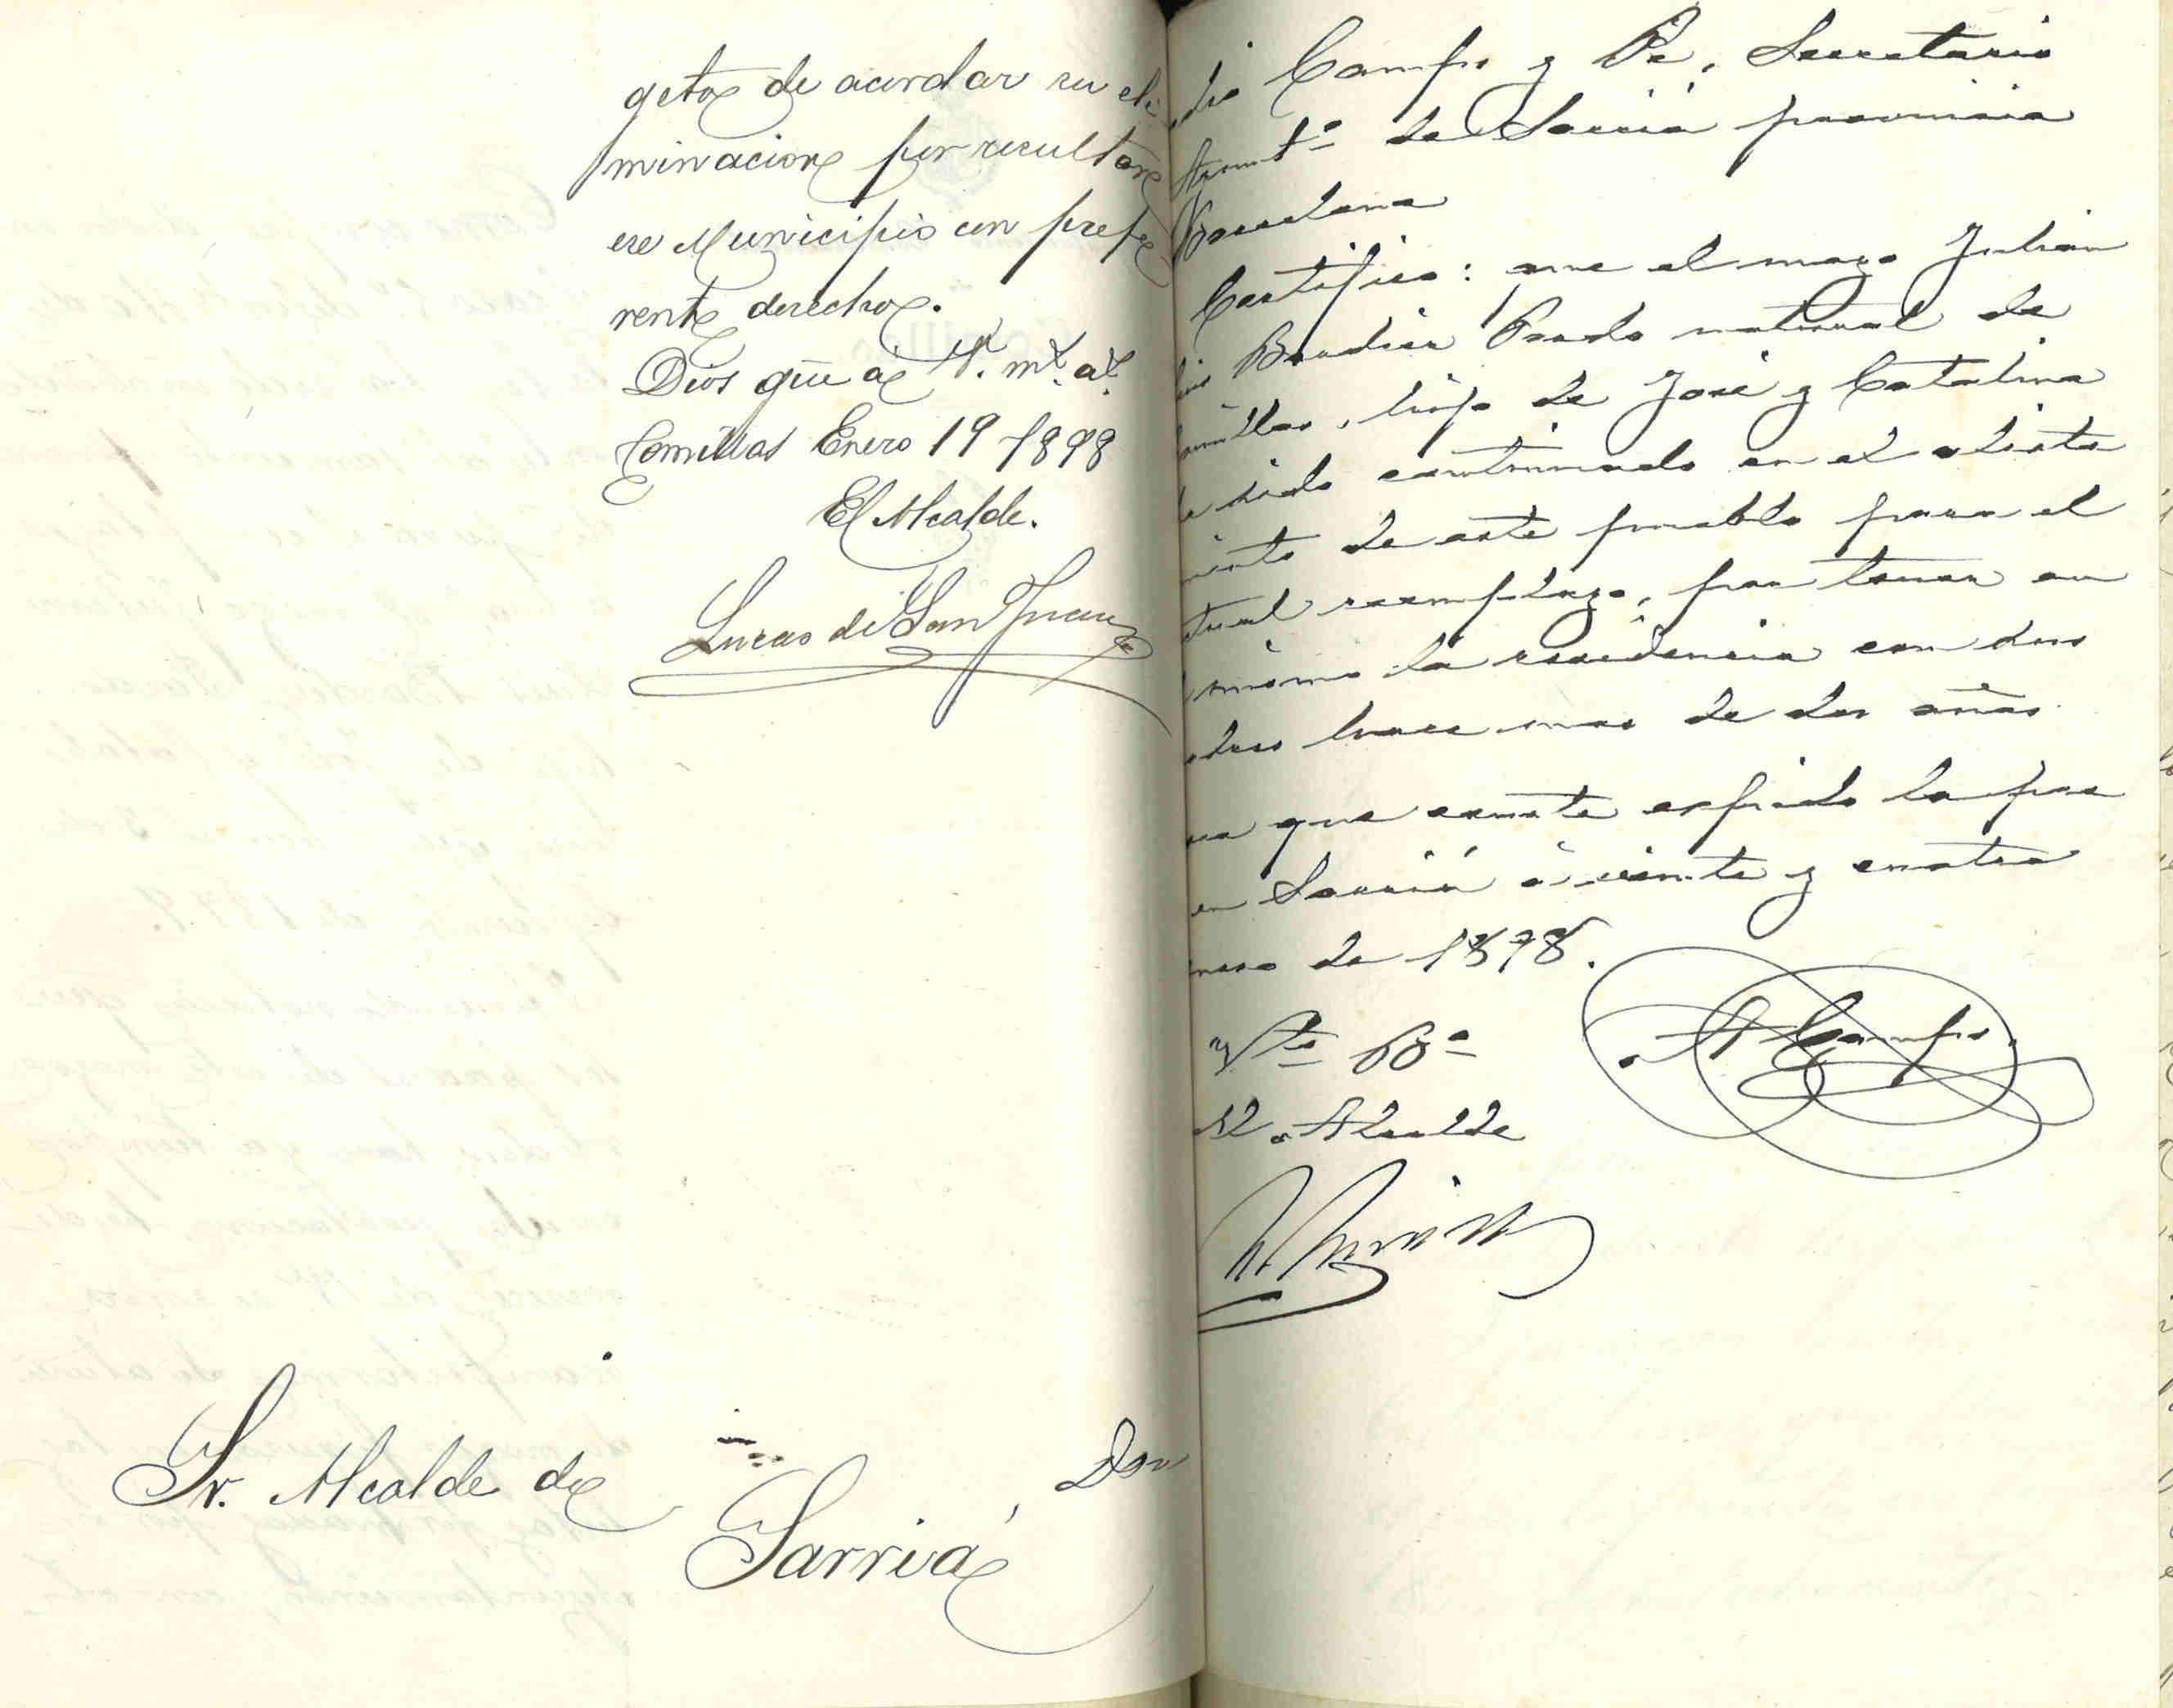 geto de acordar su eli
minacion por resultar
ese Municipio con prefe
rente derecho.
Dios gūe á V. m.s a.s
Comillas Enero 19 1898
El Alcalde.
Lucas de San Juan
Sr. Alcalde de
Sarriá
Don
dio Campo y Pé, Secretario
tamt.o de Sarriá provincia
Barcelona
Certifico: que el mozo Julian
Luis Boudier Pardo natural de
omillas, hijo de José y Catalina
a sido continuado en el alista
miento de este pueblo para el
tual reemplazo, por tener en
mismo la residencia con sus
adres hace mas de dos años.
ra que conste espido la pre
en Sarriá á veinte y cuatro
nero de 1898.
V.to B.o
El Alcalde
A Campo